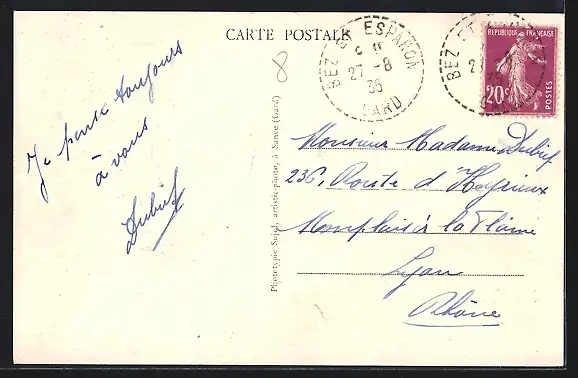 CARTE POSTALE
Je pense toujours
à vous
Dubief
8
BEZ ET ESPARON
27-8
35
GARD
BEZ ET ESPARON
REPUBLIQUE FRANÇAISE
20c
POSTES
Phototypie Sujol, artiste-photo, à Sauve (Gard)
Monsieur Madame Dubief
236, Route d'Heyrieux
Monplaisir la Plaine
Lyon
Rhône